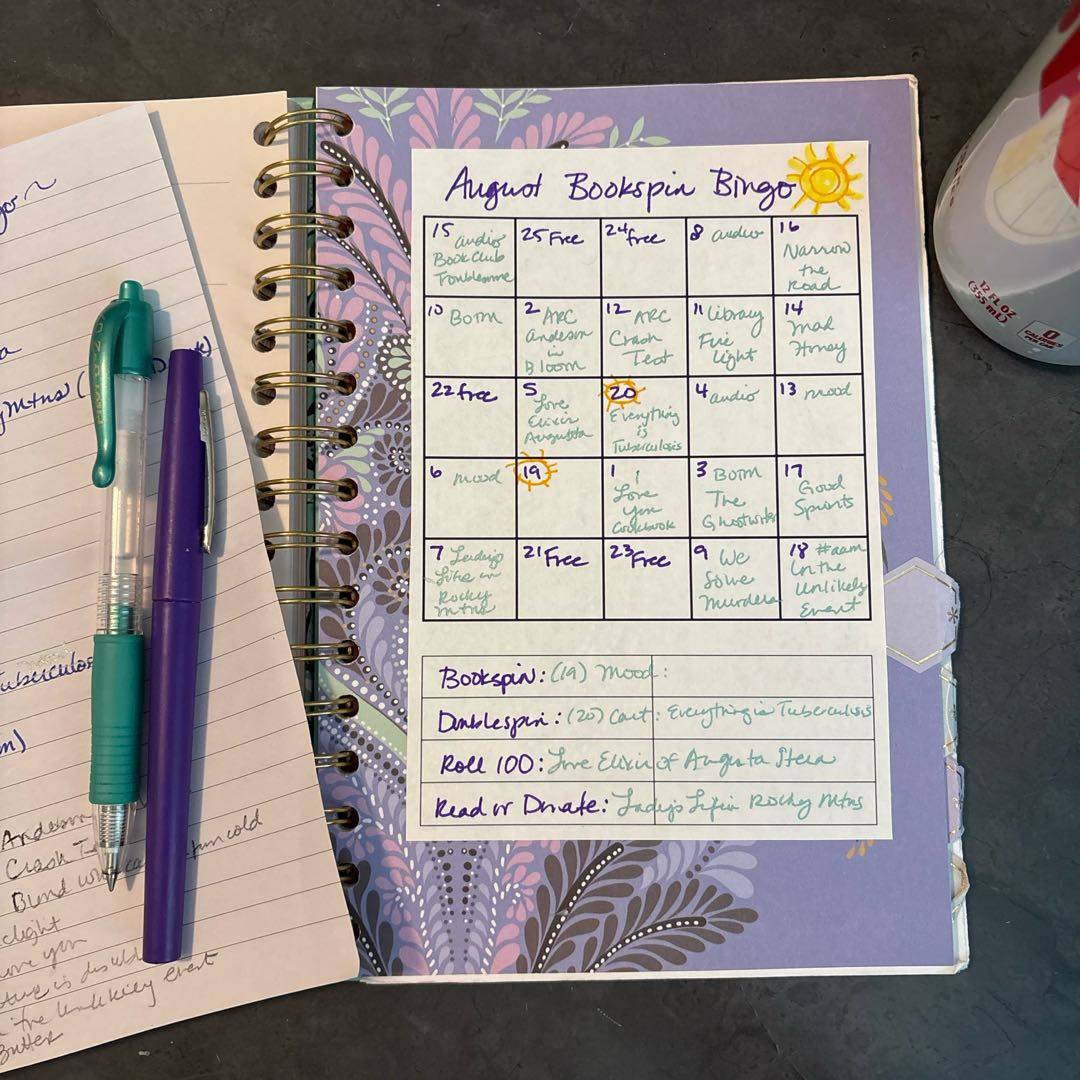 August Bookspin Bingo
15 audio
Book Club
Troublesome
25 Free
24 free
8 audio
16
Narrow
the
Road
10 BOTM
2 ARC
Anderson
in
Bloom
12 ARC
Crash
Test
11 Library
Fire
light
14
Mad
Honey
22 free
5
Love
Elixir
Augusta
20
Everything
is
Tuberculosis
4 audio
13 mood
6 mood
19
1 I
Love
You
Cookbook
3 BOTM
The
Ghostwriter
17
Good
Spirits
7 Lady's
Life in
Rocky
Mtns
21 Free
23 Free
9 We
Solve
Murders
18 #aam
In the
Unlikely
Event
Bookspin: (19) Mood:
Doublespin: (20) Cont: Everything is Tuberculosis
Roll 100: Love Elixir of Augusta Stern
Read or Donate: Lady's Life in Rocky Mtns
Mtns (
Tuberculos
Anderson
Crash T
Blend
light
love you
the Unlikely Event
Butter
12 FL OZ
(355 mL)
0
CALORIES
PER CAN